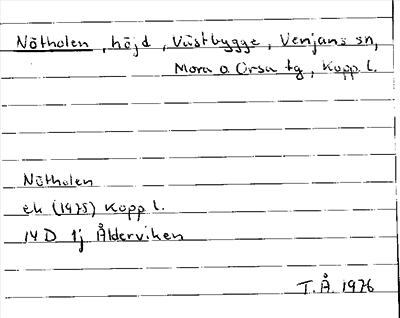 Nötholen, höjd, Västbygge, Venjans sn,
Mora o. Orsa tg, Kopp l.
Nötholen
ek (1975) Kopp l.
14 D 1j Ålderviken
T.Å. 1976